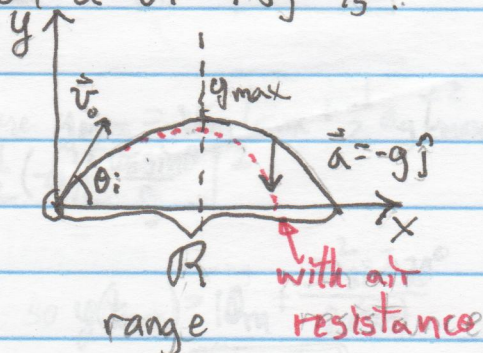 y
y max
v⃗₀
a⃗ = -g ĵ
θi
x
R
range
with air
resistance